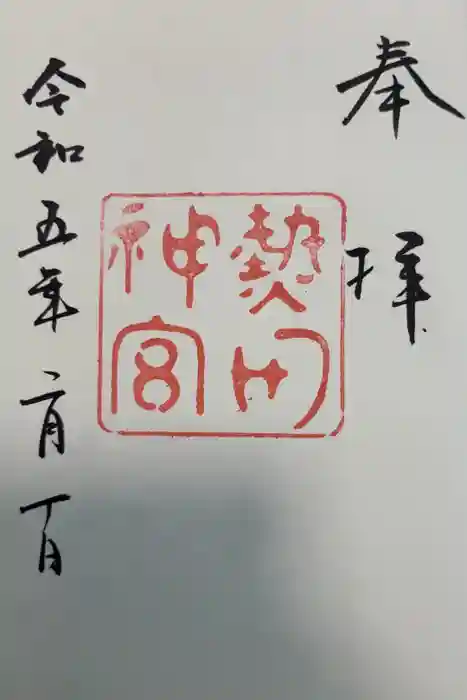 奉拝
熱田
神宮
令和五年二月一日